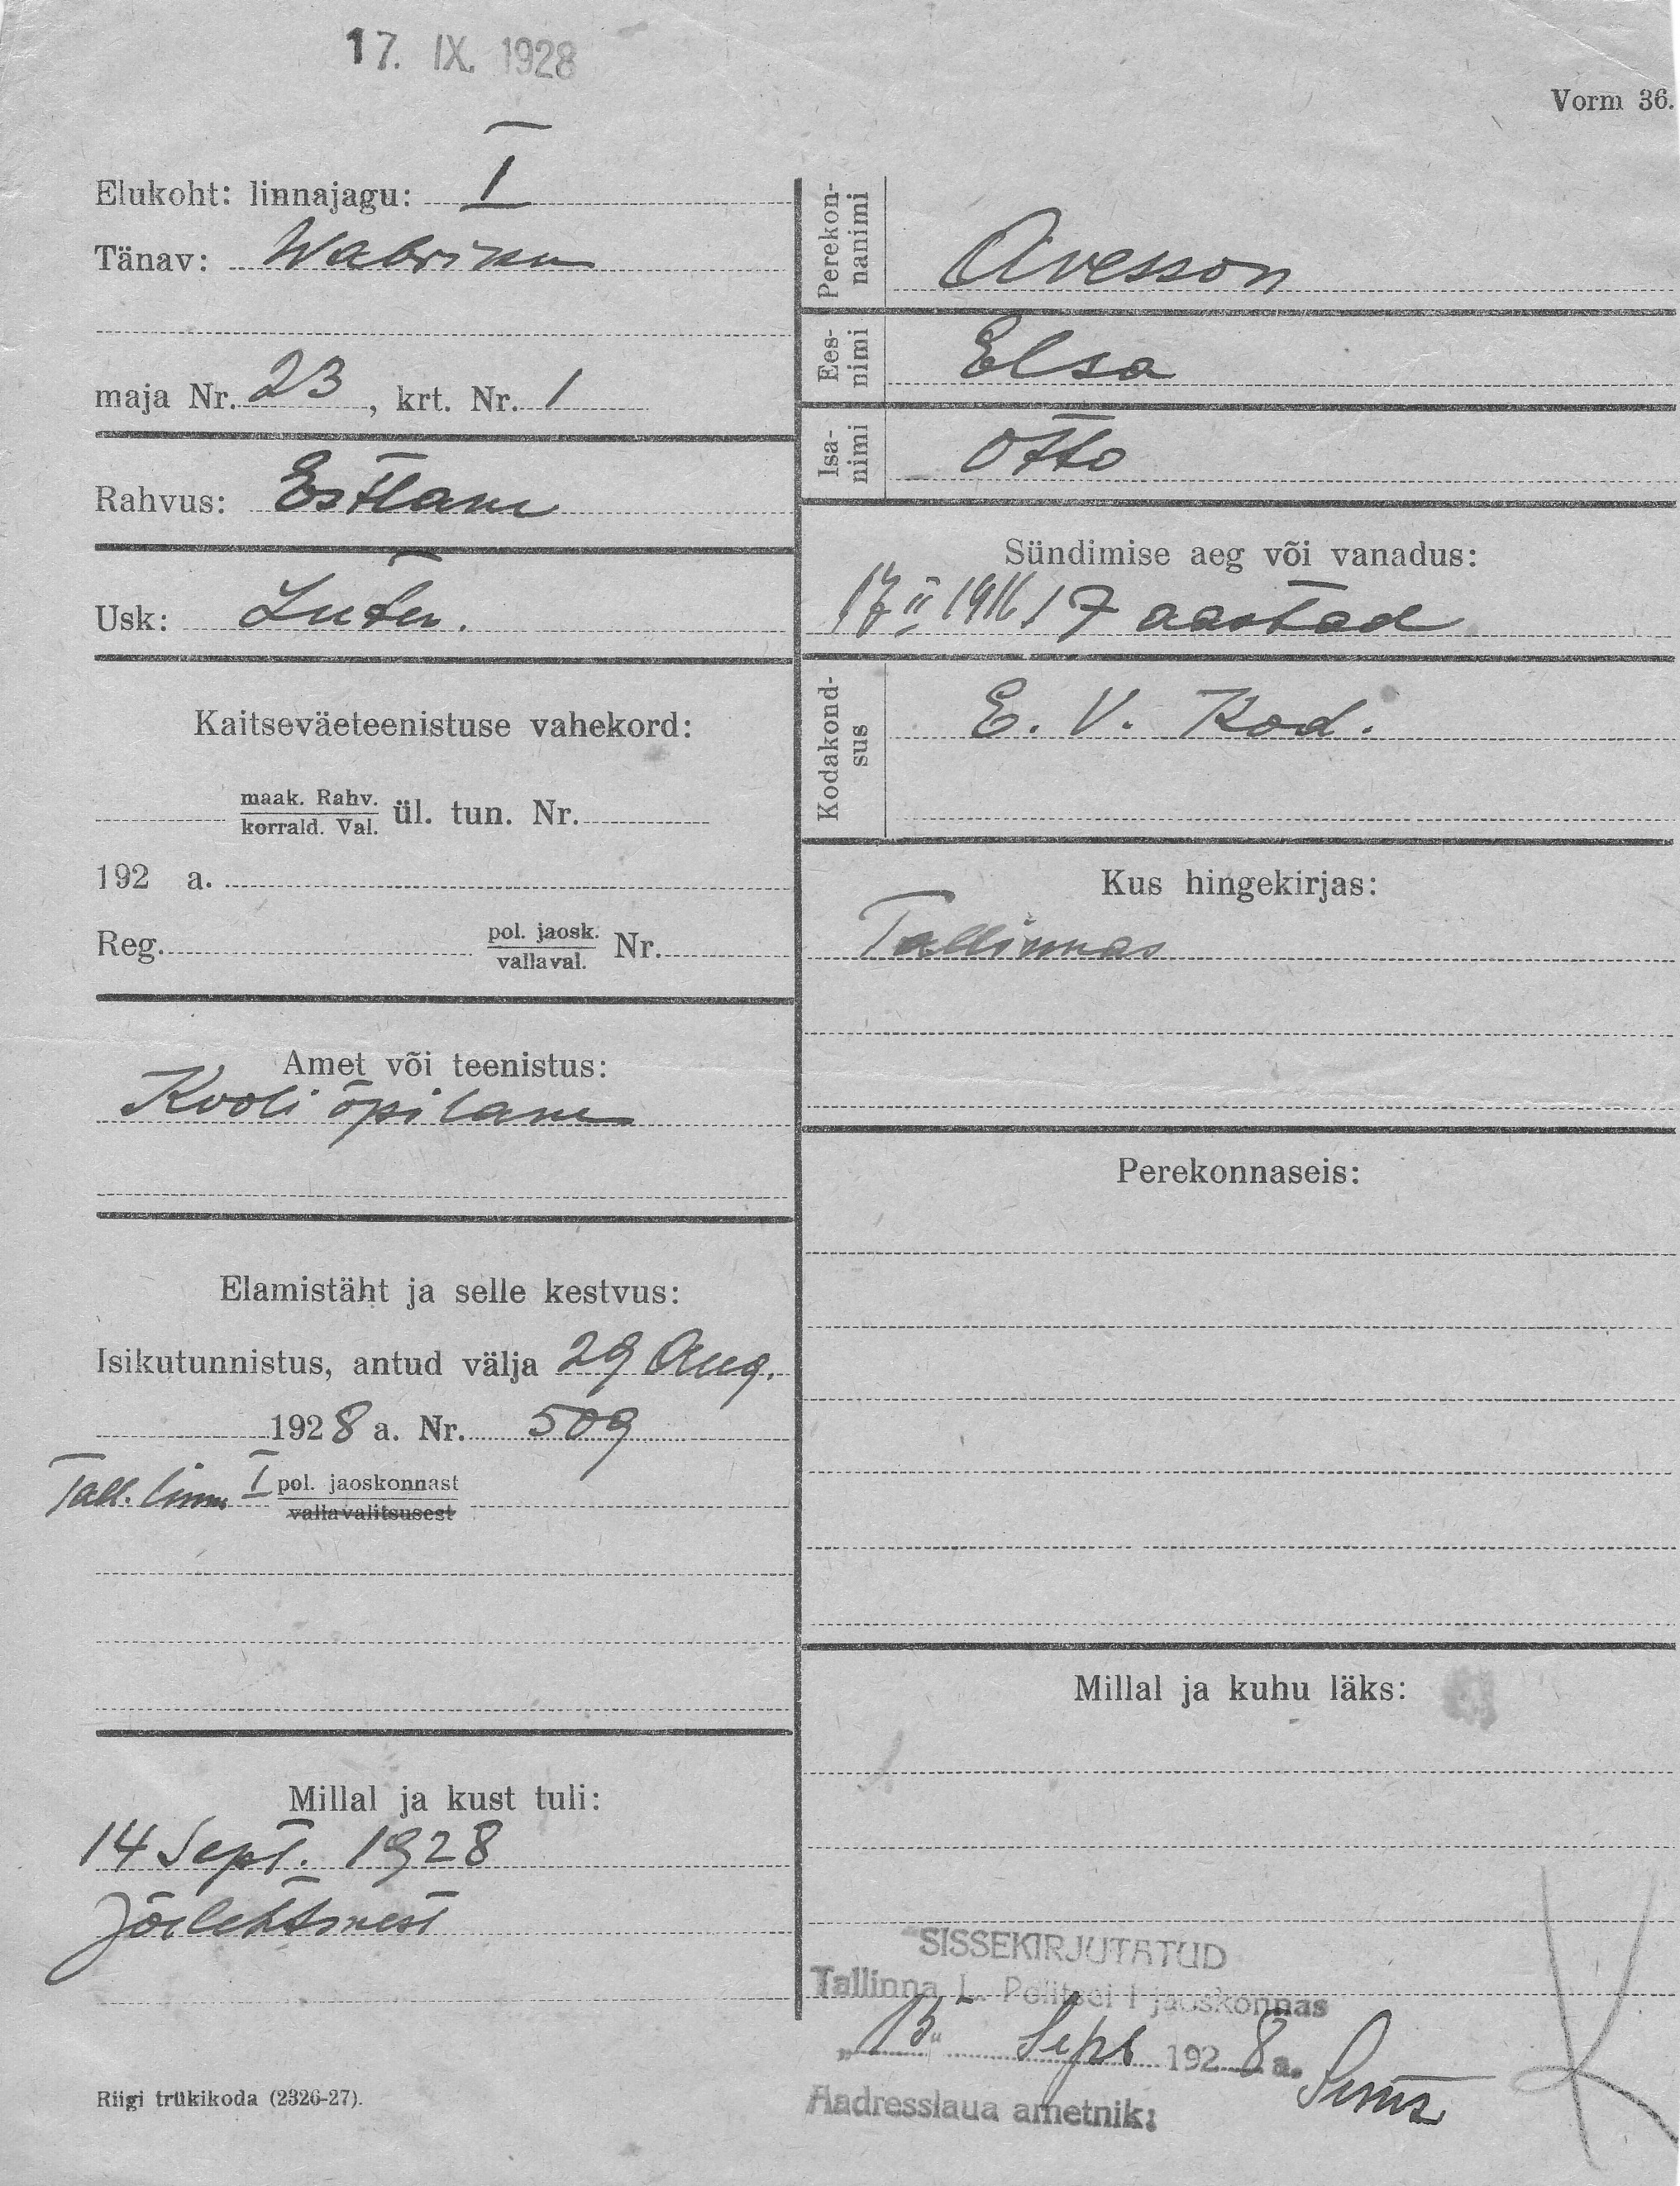 17. IX. 1928
Vorm 36.
Elukoht: linnajagu: I
Tänav: Wabriku
maja Nr. 23, krt. Nr. 1
Rahvus: Estlane
Usk: Luter.
Kaitseväeteenistuse vahekord:
maak. Rahv.
korrald. Val.
ül. tun. Nr.
192 a.
Reg. pol. jaosk. Nr.
vallaval.
Amet või teenistus:
Kooli õpilane
Elamistäht ja selle kestvus:
Isikutunnistus, antud välja 29 Aug.
1928 a. Nr. 509
Tall. linna I pol. jaoskonnast
vallavalitsusest
Millal ja kust tuli:
14 Sept. 1928
Jõelehtmest
Riigi trükikoda (2326-27).
Perekon-
nanimi
Avesson
Ees-
nimi
Elsa
Isa-
nimi
Otto
Sündimise aeg või vanadus:
17 II 1911 17 aastad
Kodakond-
sus
E. V. Kod.
Kus hingekirjas:
Tallinnas
Perekonnaseis:
Millal ja kuhu läks:
SISSEKIRJUTATUD
Tallinna L. Politsei I jaoskonnas
„15“ Sept 1928 a.
Aadresslaua ametnik:
K